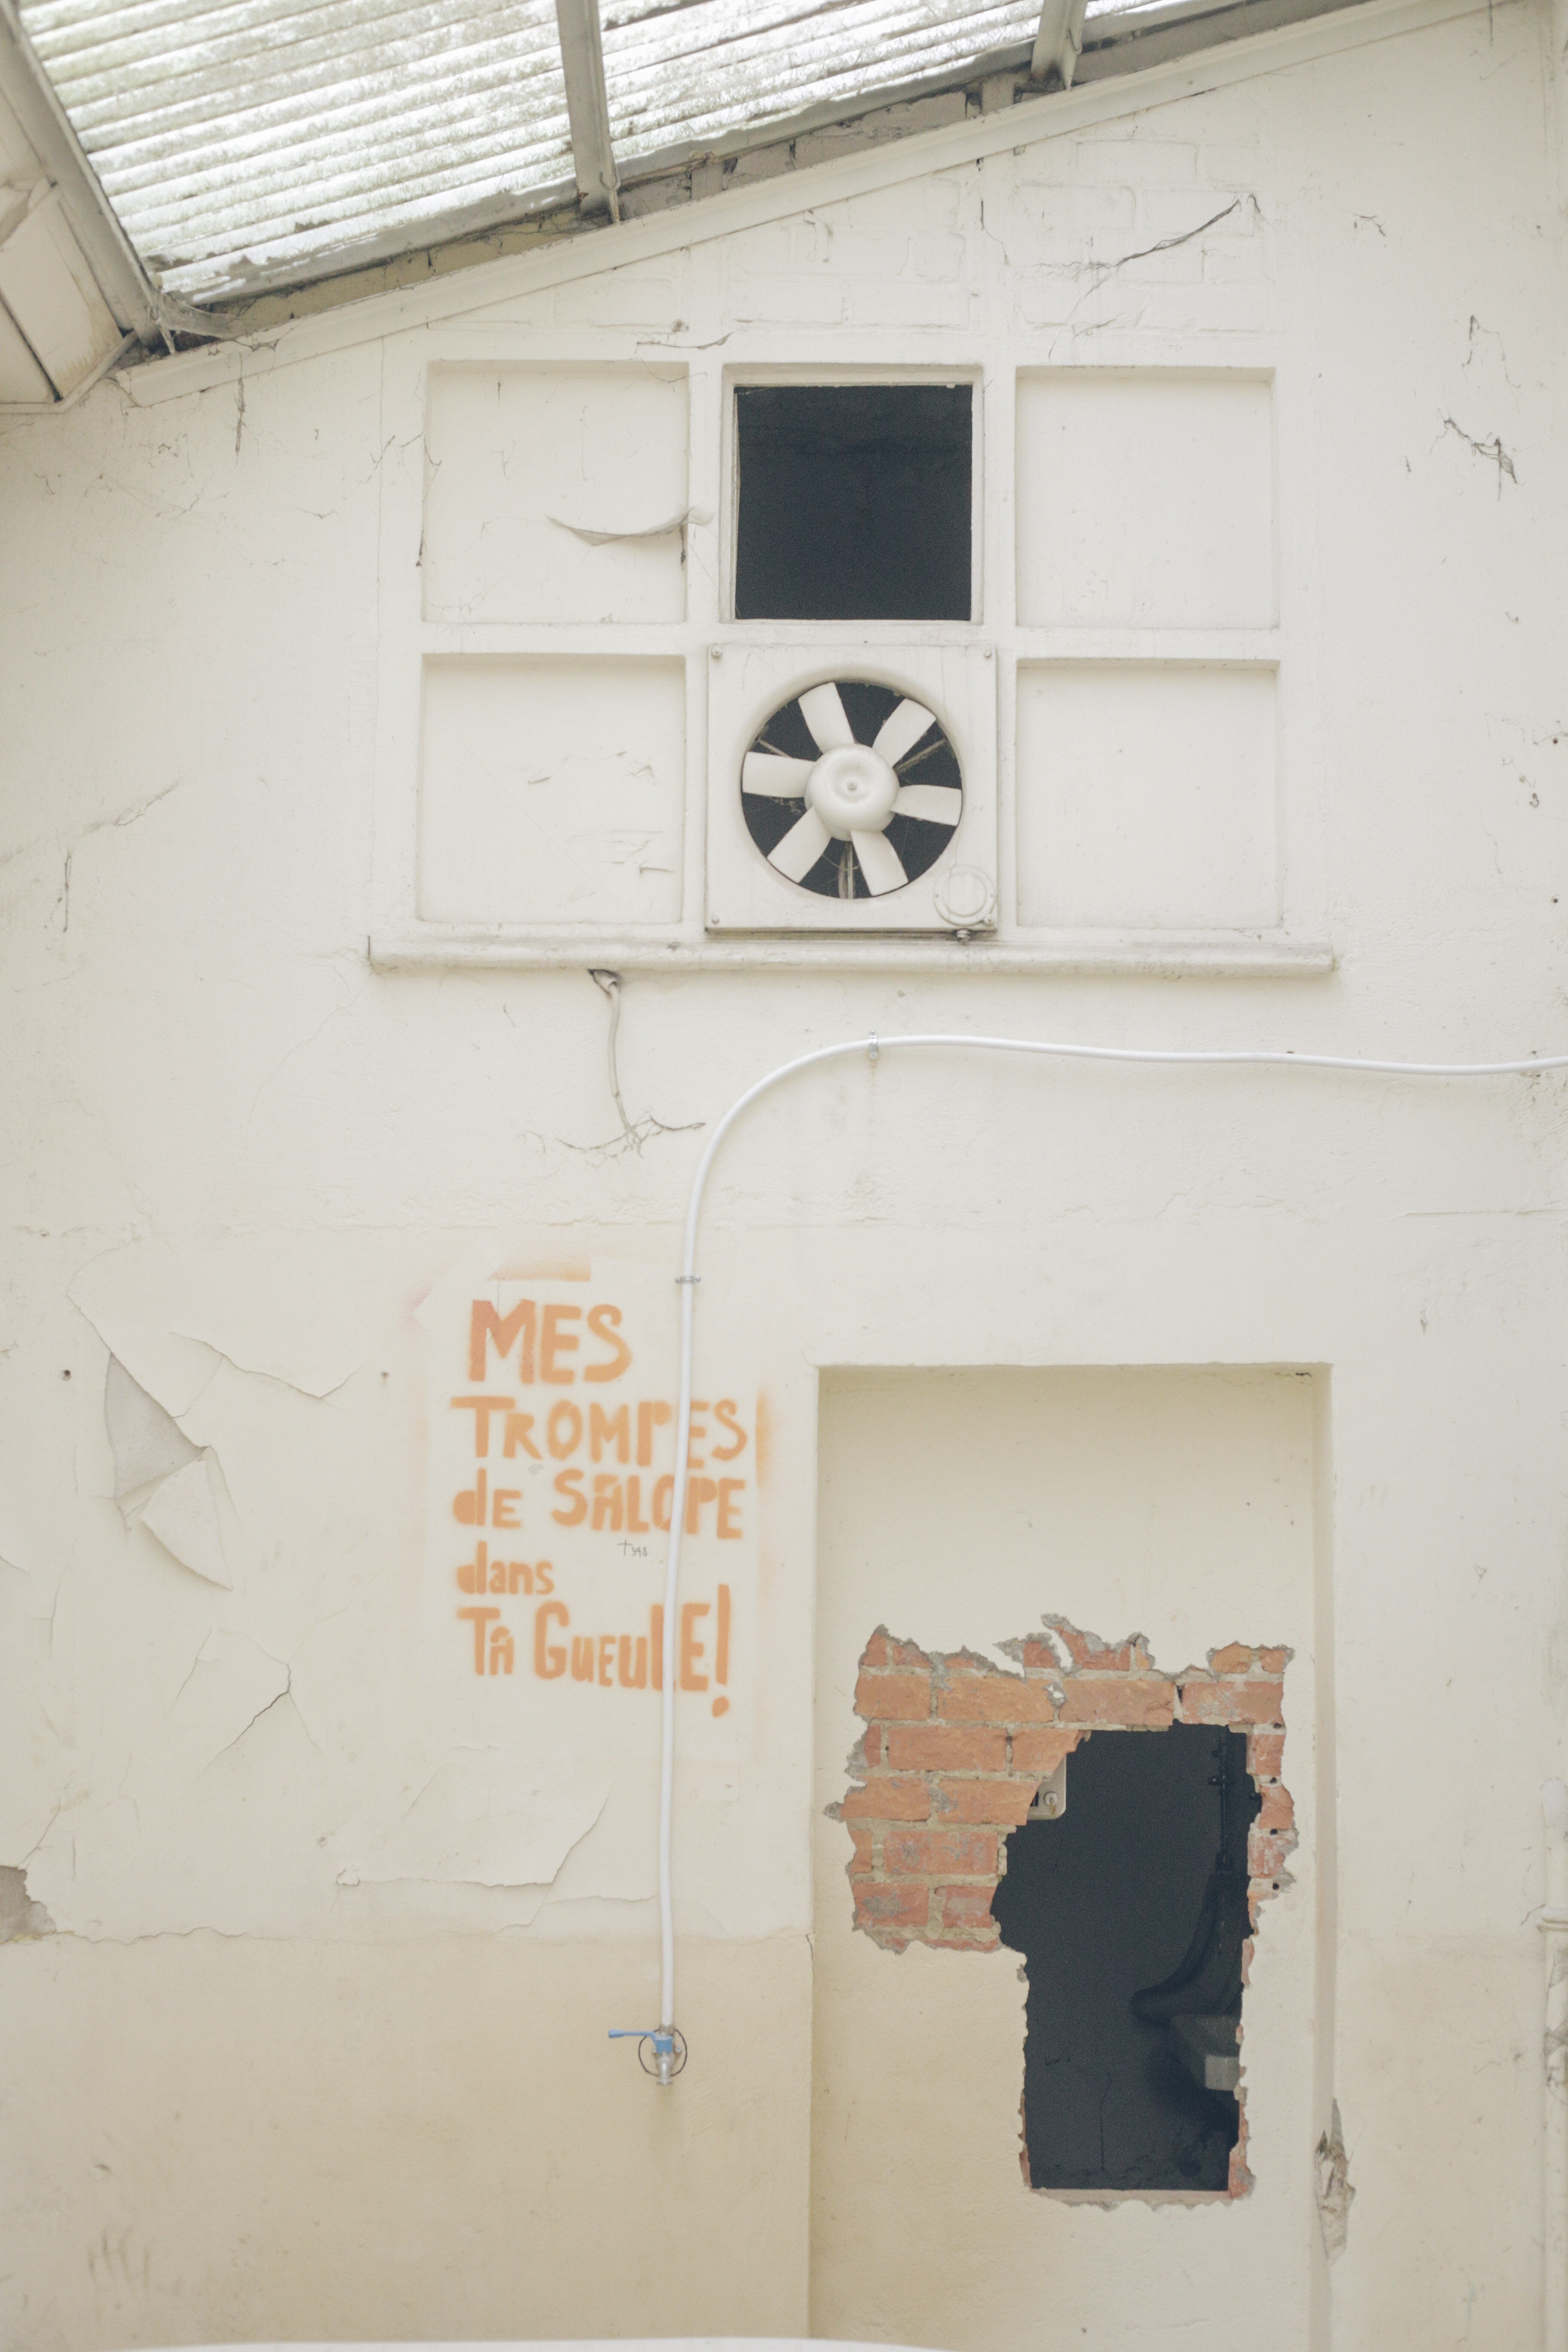 MES
TROMPES
dE SALOPE
dans
TA GUEULE!